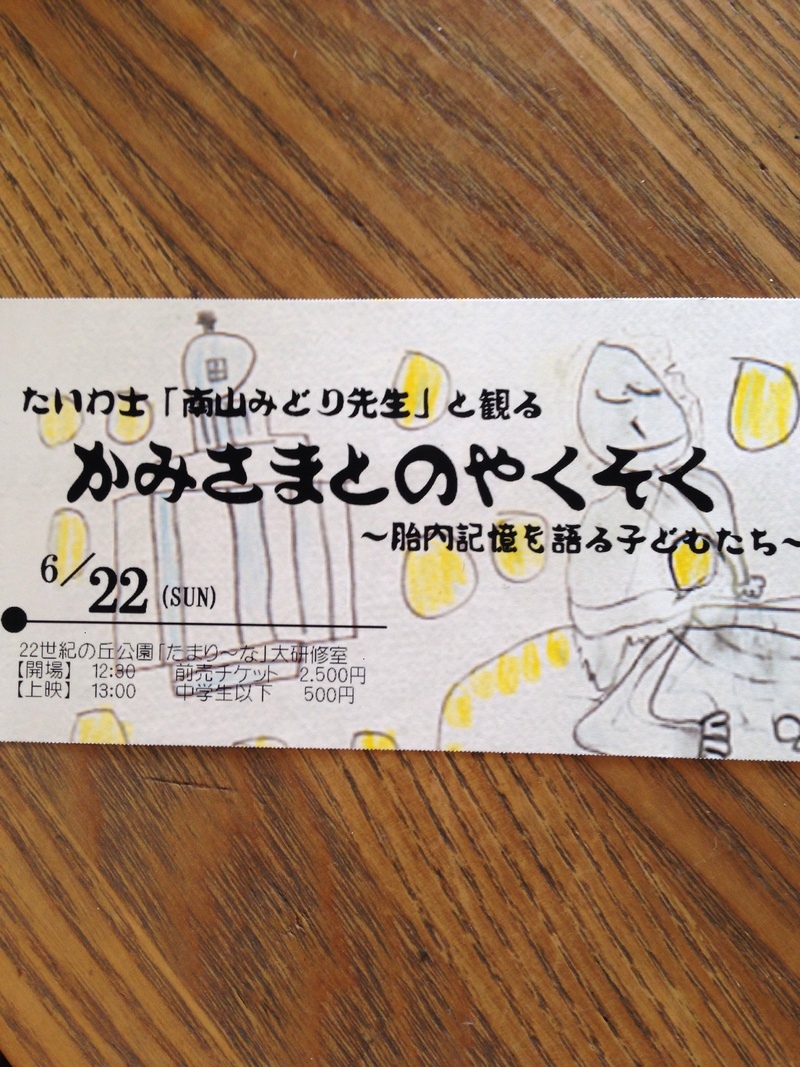 たいわ士「南山みどり先生」と観る
かみさまとのやくそく
～胎内記憶を語る子どもたち～
6/22 (SUN)
22世紀の丘公園「たまり～な」大研修室
【開場】 12:30 前売チケット 2.500円
【上映】 13:00 中学生以下 500円